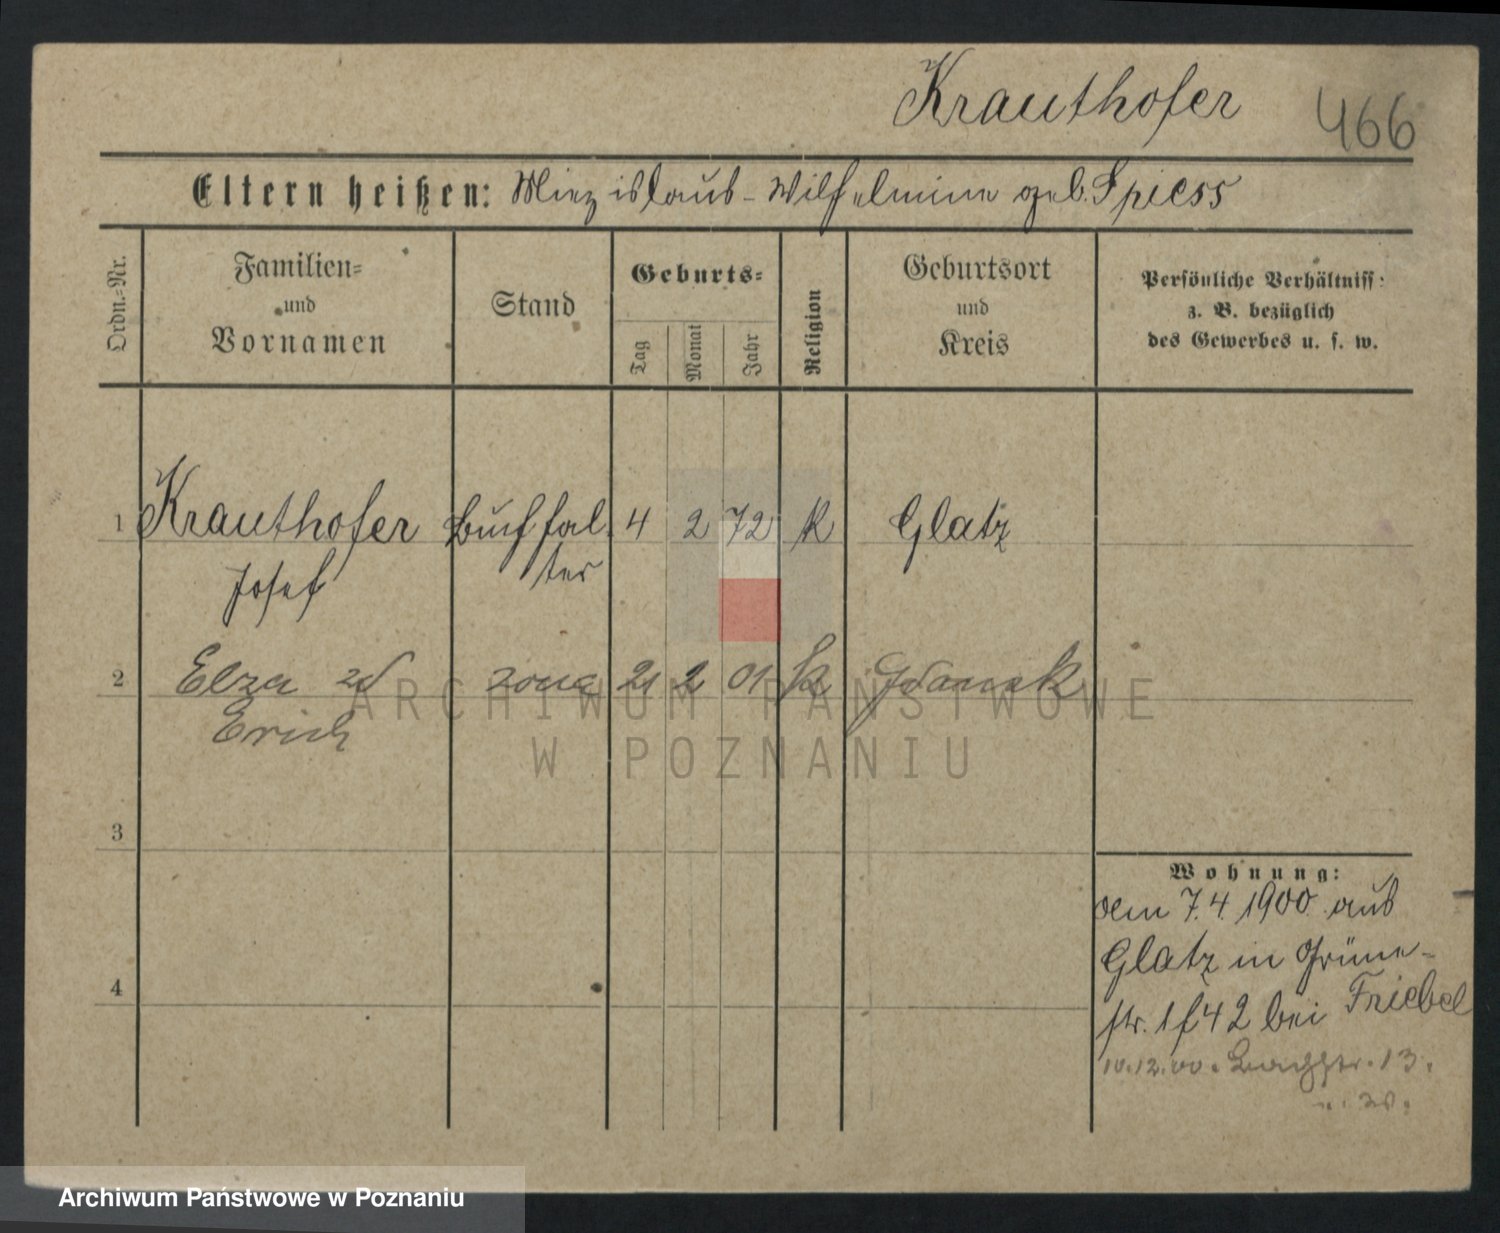 Krauthofer 466
Eltern heißen: Miezislaus - Wilhelmine geb. Spiess
Ordn.-Nr.
Familien-
und
Vornamen
Stand
Geburts-
Tag
Monat
Jahr
Religion
Geburtsort
und
Kreis
Persönliche Verhältniss:
z. B. bezüglich
des Gewerbes u. s. w.
1 Krauthofer Buchhal- 4 2 72 K Glatz
Josef ter
2 Elza żona 21 2 01 K Gdansk
Erich
ARCHIWUM PAŃSTWOWE
W POZNANIU
3
Wohnung:
den 7.4. 1900 aus
Glatz in Grüne-
4
str. 1 f 42 bei Friebel
10.12.00. 13.
Archiwum Państwowe w Poznaniu